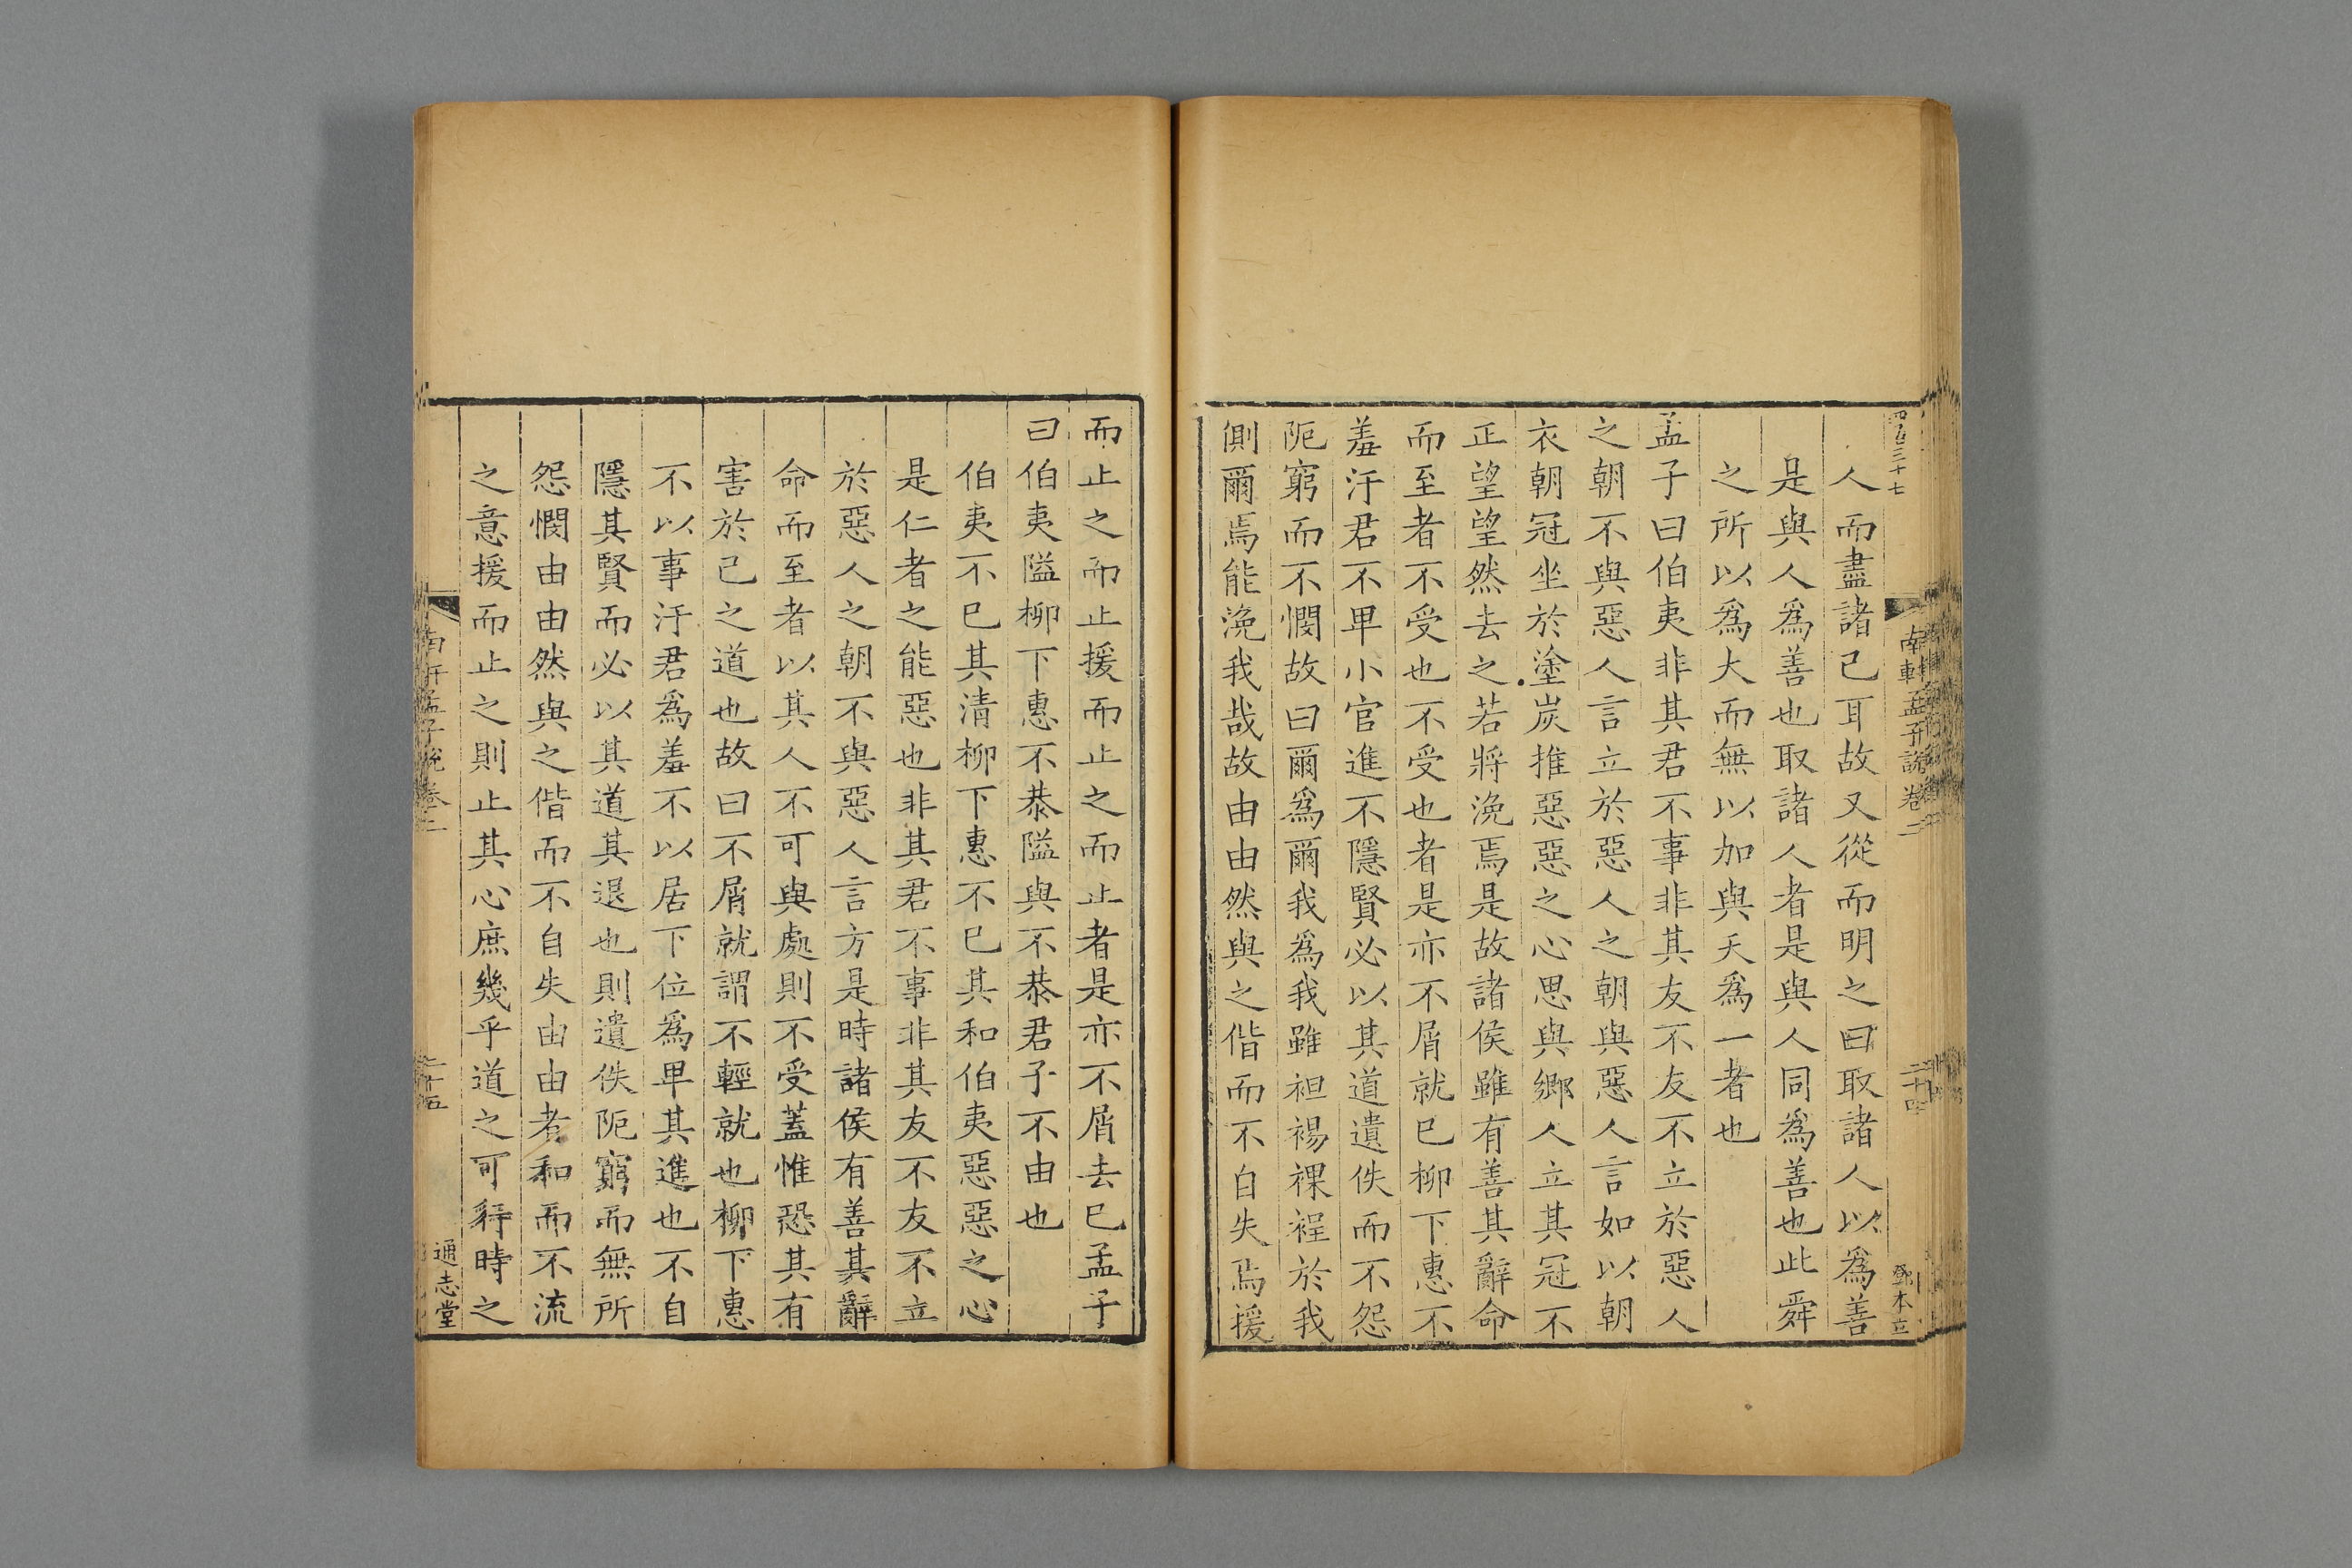 四百三十七
南軒孟子說卷二
二十四
鄧本立
人而盡諸己耳故又從而明之曰取諸人以爲善
是與人爲善也取諸人者是與人同爲善也此舜
之所以爲大而無以加與天爲一者也
孟子曰伯夷非其君不事非其友不友不立於惡人
之朝不與惡人言立於惡人之朝與惡人言如以朝
衣朝冠坐於塗炭推惡惡之心思與鄉人立其冠不
正望望然去之若將浼焉是故諸侯雖有善其辭命
而至者不受也不受也者是亦不屑就已柳下惠不
羞汙君不卑小官進不隱賢必以其道遺佚而不怨
阨窮而不憫故曰爾爲爾我爲我雖袒裼裸裎於我
側爾焉能浼我哉故由由然與之偕而不自失焉援
而止之而止援而止之而止者是亦不屑去已孟子
曰伯夷隘柳下惠不恭隘與不恭君子不由也
伯夷不已其清柳下惠不已其和伯夷惡惡之心
是仁者之能惡也非其君不事非其友不友不立
於惡人之朝不與惡人言方是時諸侯有善其辭
命而至者以其人不可與處則不受蓋惟恐其有
害於己之道也故曰不屑就謂不輕就也柳下惠
不以事汙君爲羞不以居下位爲卑其進也不自
隱其賢而必以其道其退也則遺佚阨窮而無所
怨憫由由然與之偕而不自失由由者和而不流
之意援而止之則止其心庶幾乎道之可行時之
南軒孟子說卷二
二十五
通志堂